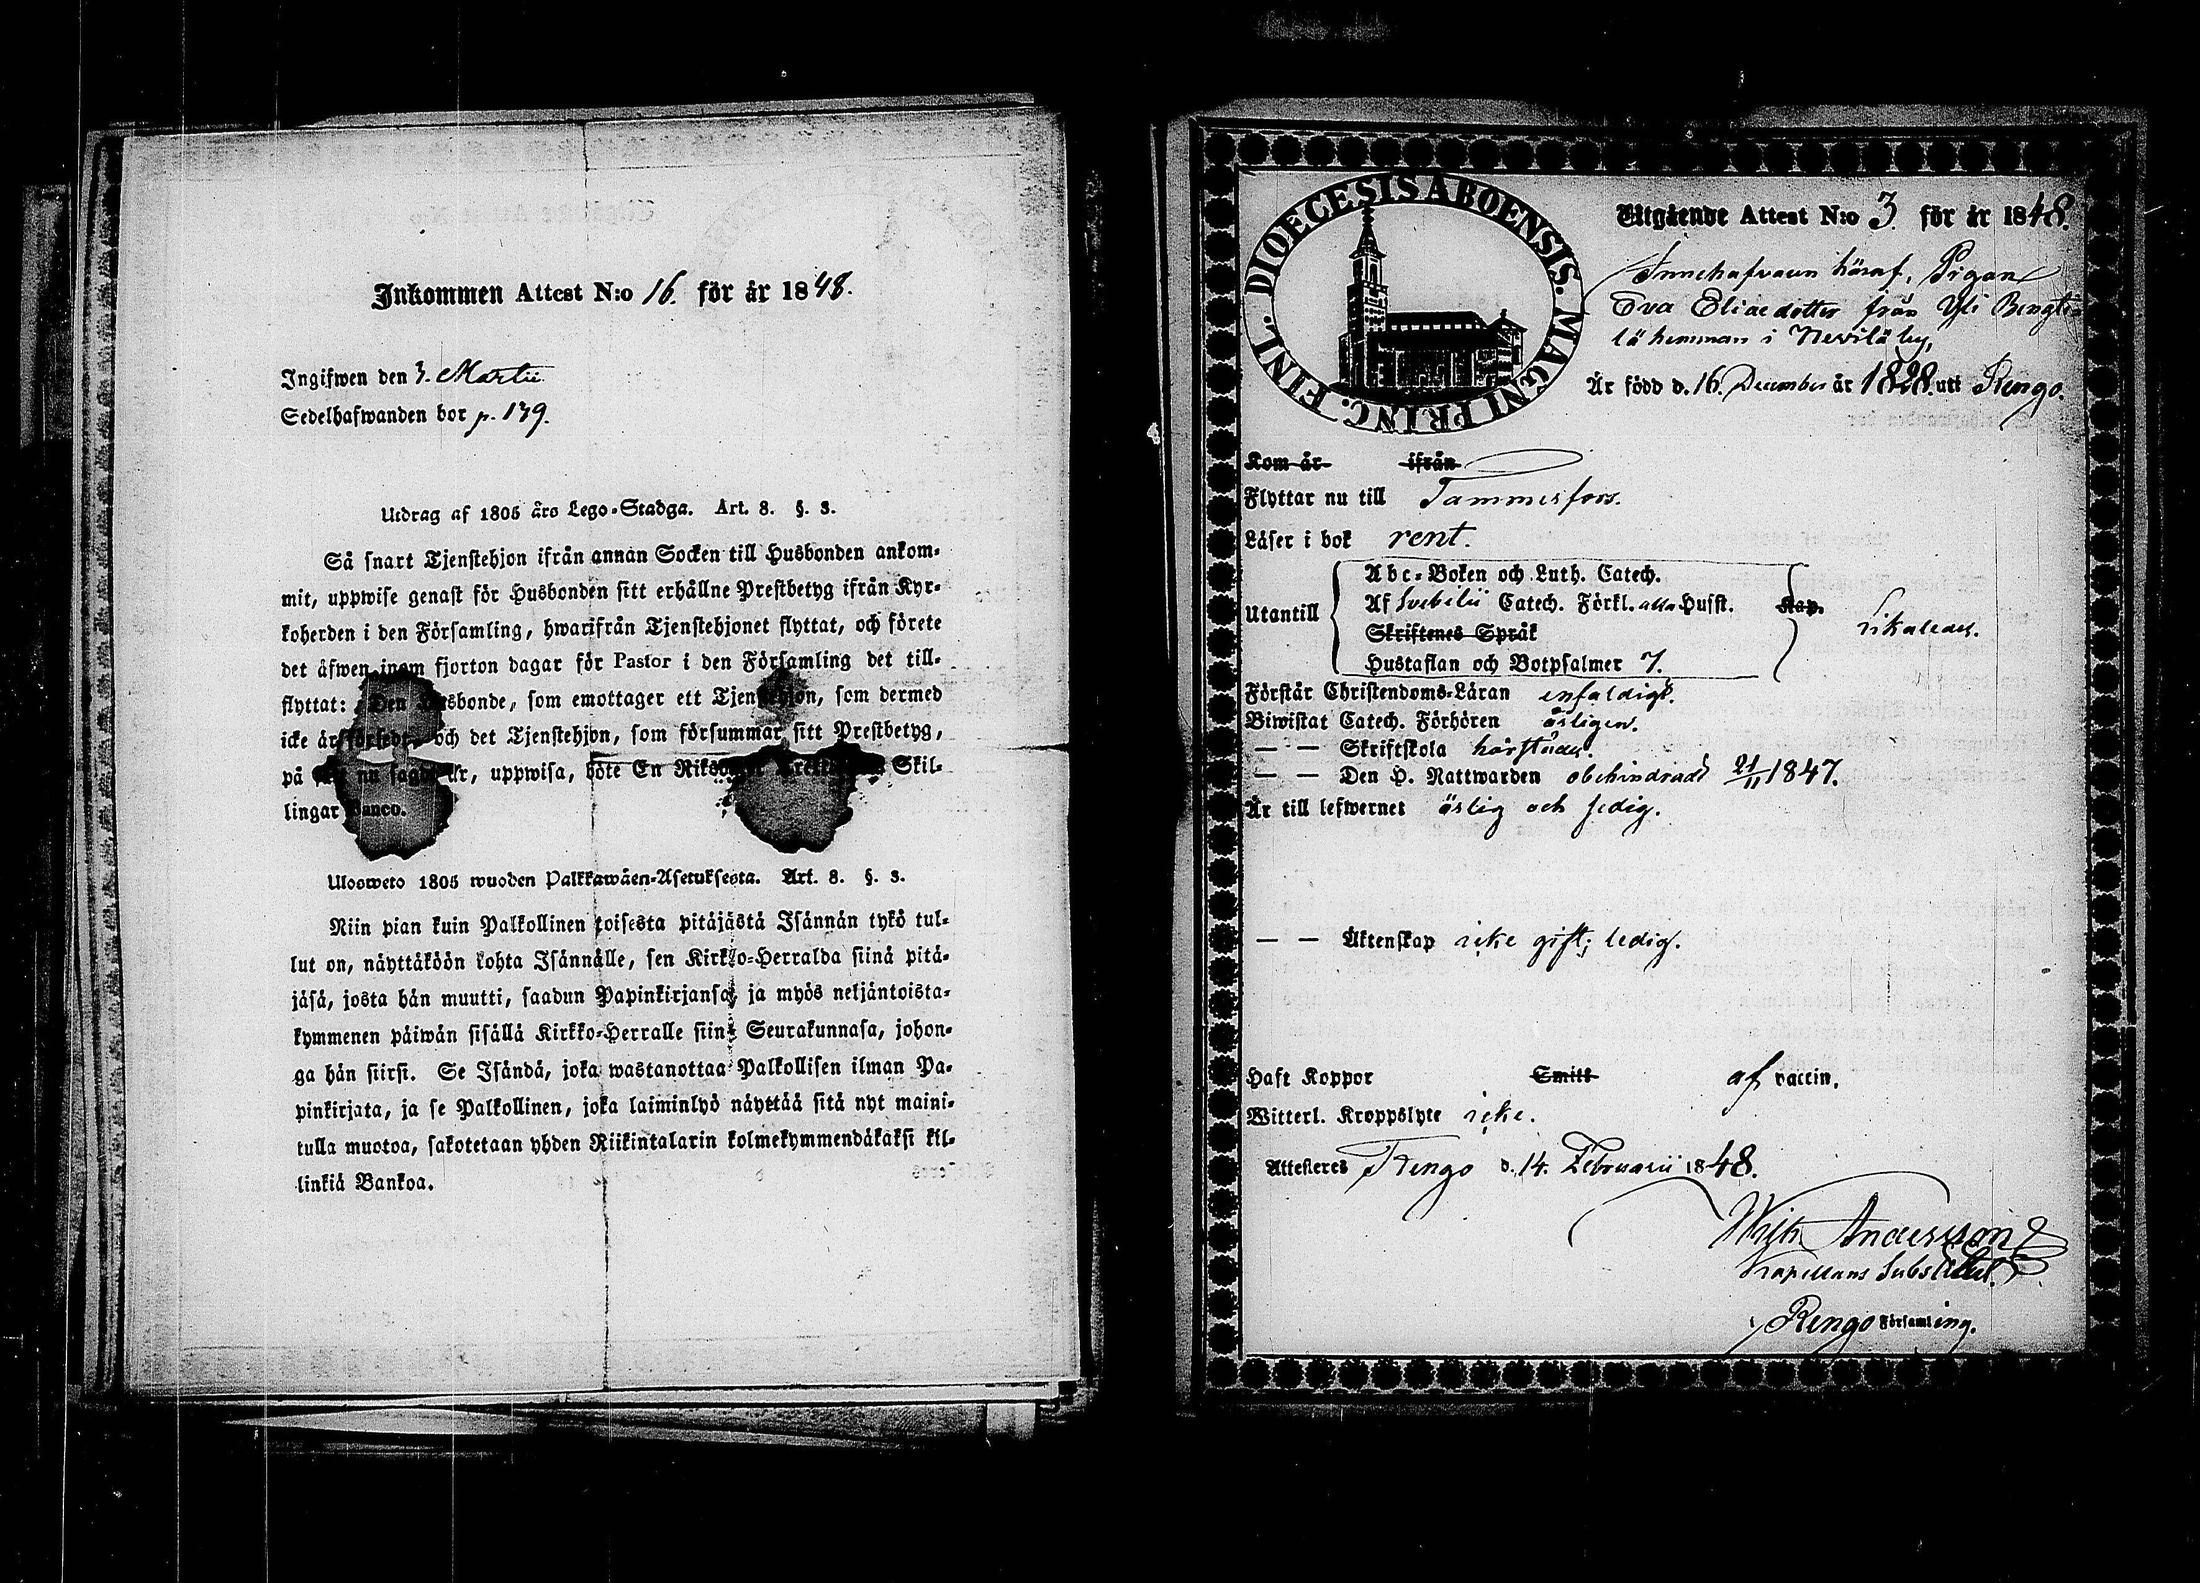 Inkommen Attest N:o 16. för år 1848.
Ingifwen den 3. Martii
Sedelhafwanden bor p. 139.
Utdrag af 1805 års Lego-Stadga. Art. 8. §. 3.
Så snart Tjenstehjon ifrån annan Socken till Husbonden ankom-
mit, uppwise genast för Husbonden sitt erhållne Prestbetyg ifrån Kyr-
koherden i den Församling, hwarifrån Tjenstehjonet flyttat, och förete
det äfwen inom fjorton dagar för Pastor i den Församling det till-
flyttat: Den Husbonde, som emottager ett Tjenstehjon, som dermed
icke är försedt, och det Tjenstehjon, som försummar sitt Prestbetyg,
på sätt nu sagdt är, uppwisa, böte En Riksdaler Skil-
lingar Banco.
Ulosweto 1805 wuoden Palkkawäen-Asetuksesta. Art. 8. §. 3.
Niin pian kuin Palkollinen toisesta pitäjästä Isännän tykö tul-
lut on, näyttäköön kohta Isännälle, sen Kirkko-Herralda siinä pitä-
jäsä, josta hän muutti, saadun Papinkirjansa, ja myös neljäntoista-
kymmenen päiwän sisällä Kirkko-Herralle siinä Seurakunnasa, johon-
ga hän siirsi. Se Isändä, joka wastanottaa Palkollisen ilman Pa-
pinkirjata, ja se Palkollinen, joka laiminlyö näyttää sitä nyt maini-
tulla muotoa, sakotetaan yhden Riikintalarin kolmekymmendäkaksi kil-
linkiä Bankoa.
DIOECESIS ABOENSIS. MAGNI PRINC. FINL.
Utgående Attest N:o 3 för år 1848.
Innehafvaren häraf, Pigan
Eva Eliaedotter från Yli Bengti-
lä hemman i Nevilä by,
Är född d. 16. December år 1828. uti Rengo.
Kom år ifrån
Flyttar nu till Tammerfors.
Läser i bok rent.
Utantill
Abc-Boken och Luth. Catech.
Af Svebilii Catech. Förkl. alla Husst. Kap.
Skriftenes Språk
Hustaflan och Botpsalmer 7.
Likaledes.
Förstår Christendoms-Läran enfaldigt.
Biwistat Catech. Förhören årligen.
— — Skriftskola härstädes.
— — Den H. Nattwarden obehindradt 21/11 1847.
Är till lefwernet ärlig och sedig.
— — Äktenskap icke gift; ledig.
Haft Koppor Smitt af vaccin.
Witterl. Kroppslyte icke.
Attesteres Rengo d. 14. Februarii 1848.
Wilh Andersson
Kapellans Substitut.
i Rengo Församling.